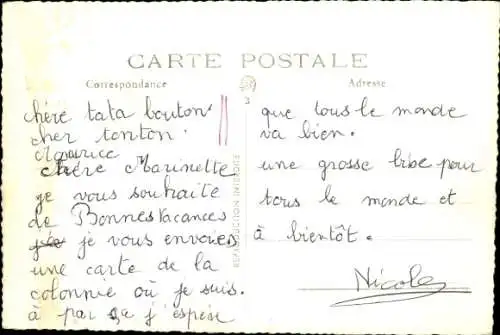 CARTE POSTALE
Correspondance
Adresse
3
chère tata bouton
cher tonton
Maurice
chère Marinette
je vous souhaite
de Bonnes Vacances
je vous envoies
une carte de la
colonnie où je suis.
à par ça j'espère
que tous le monde
va bien.
une grosse bise pour
tous le monde et
à bientôt.
Nicole
REPRODUCTION INTERDITE